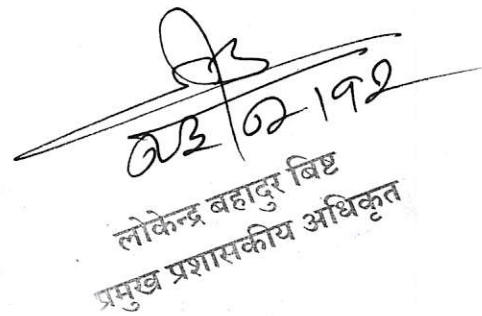 लोकेन्द्र बहादुर बिष्ट
प्रमुख प्रशासकीय अधिकृत